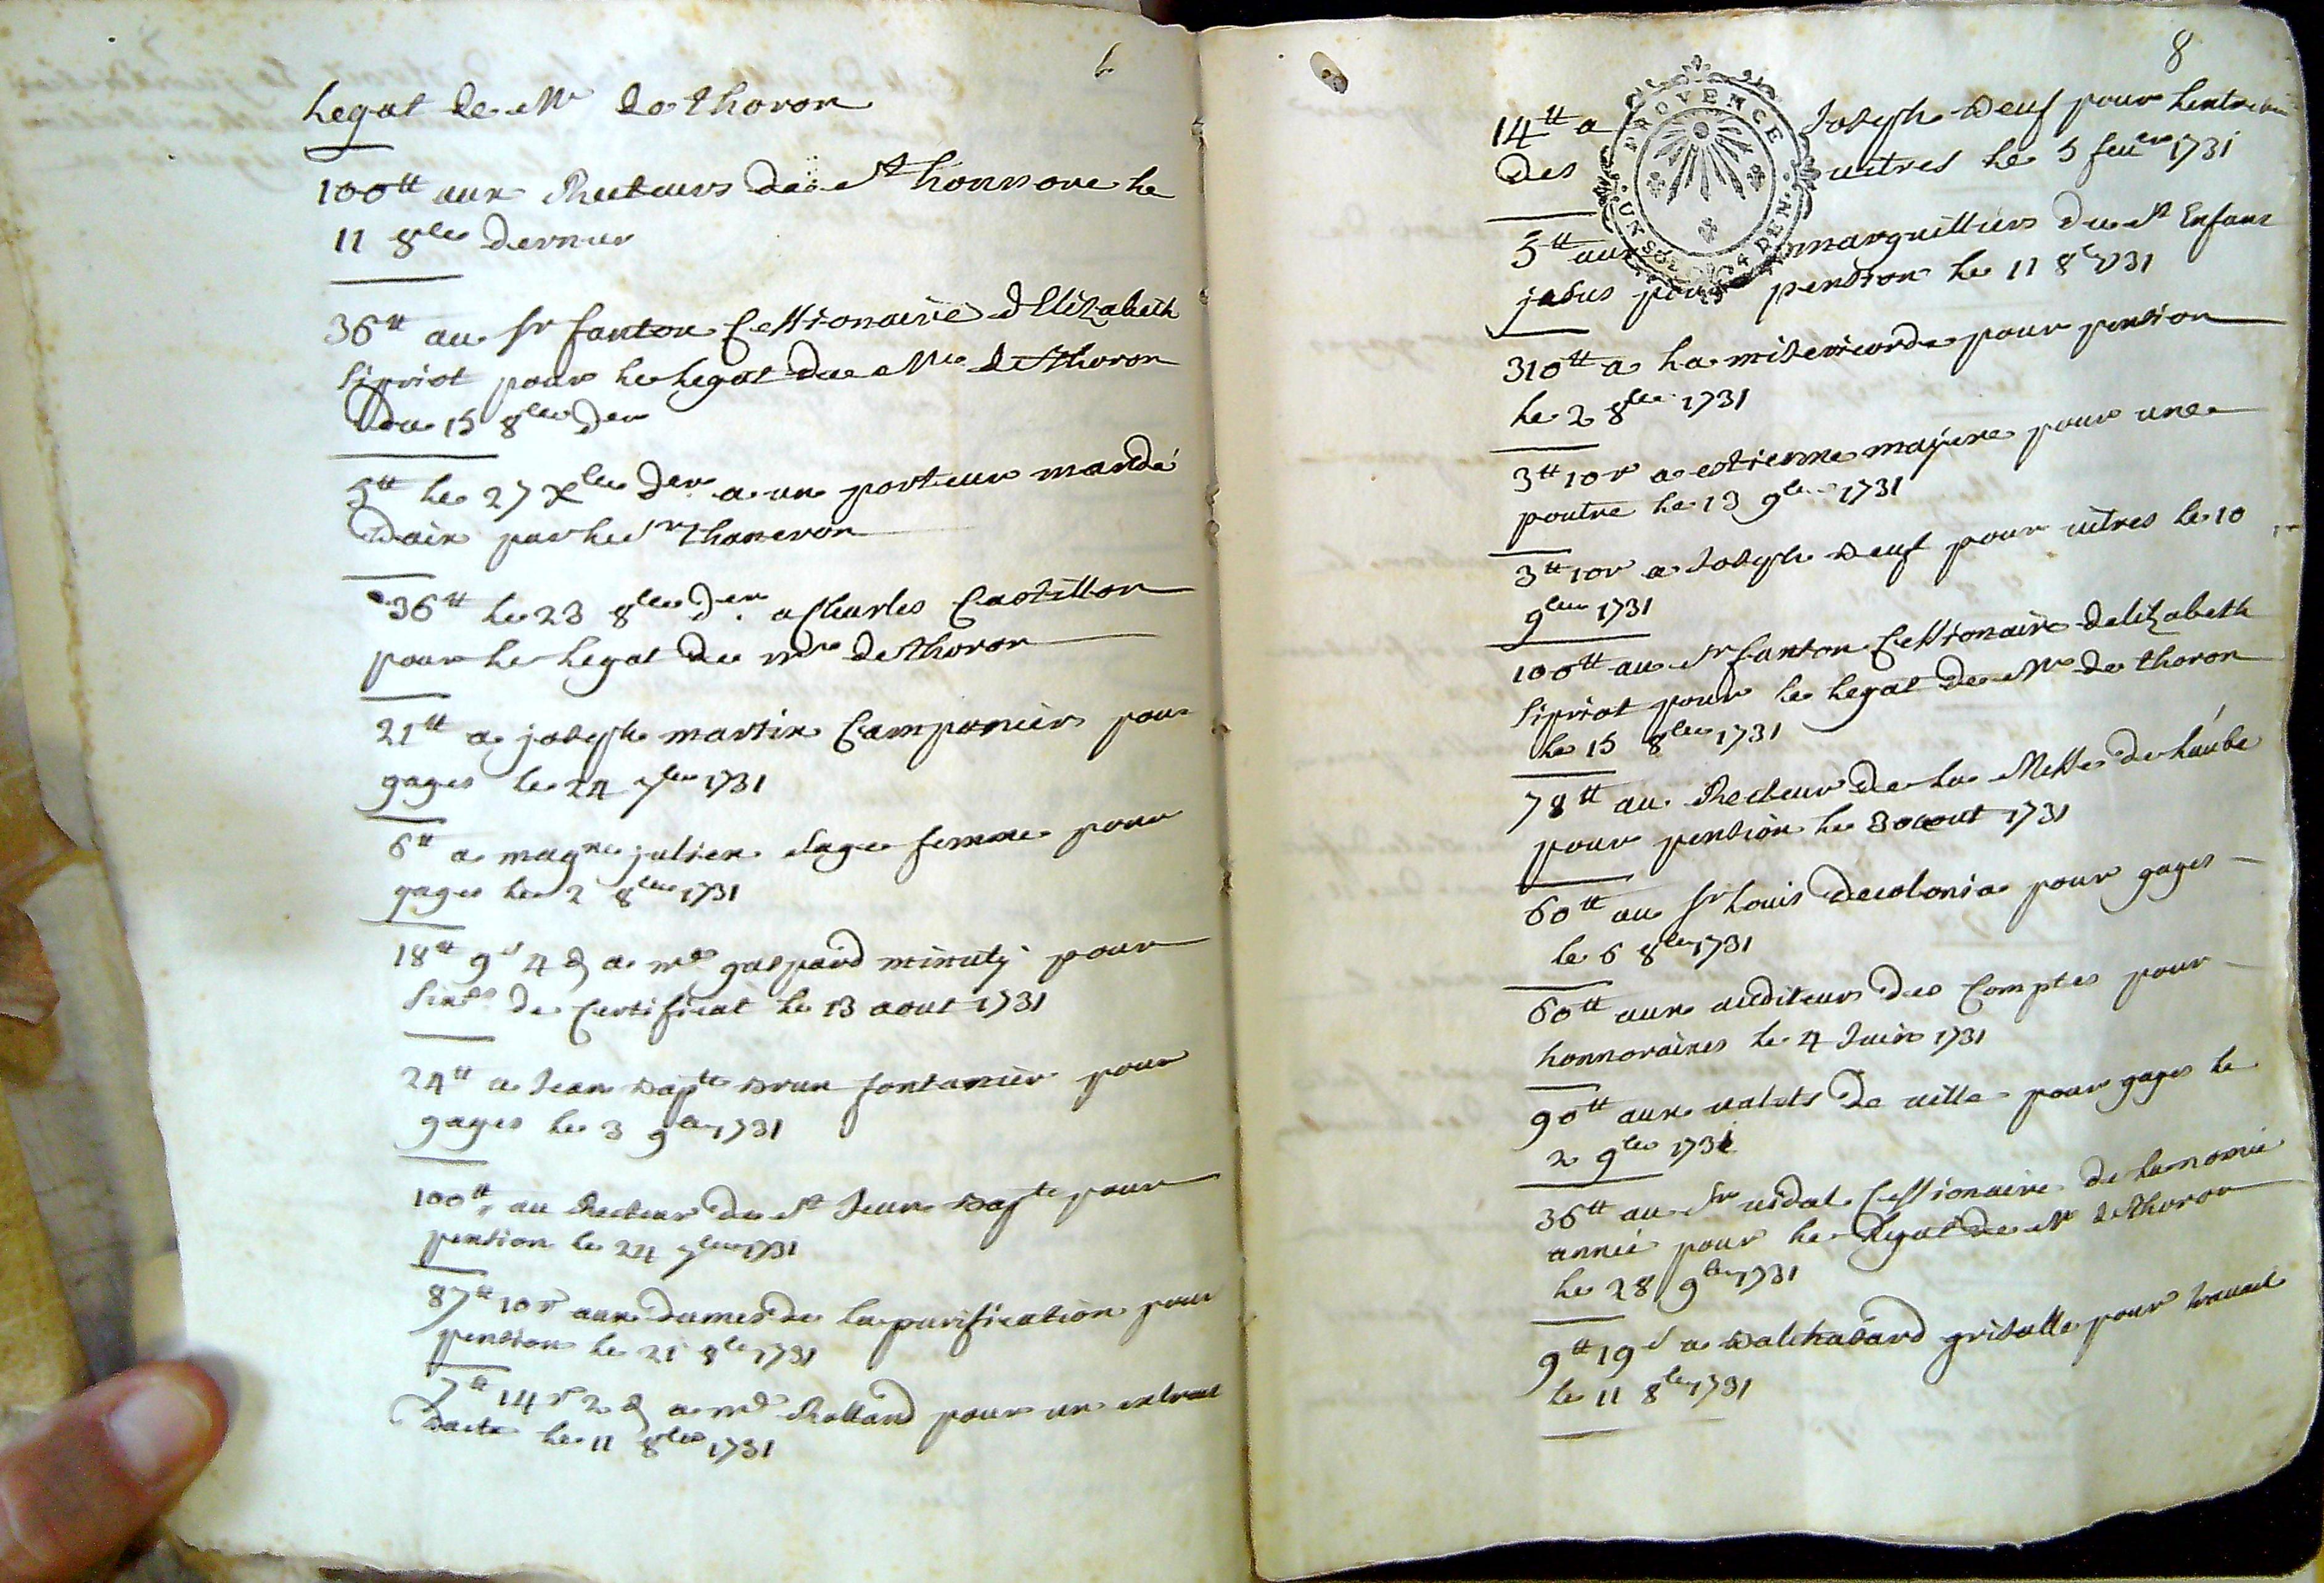 legat de Mr de thoron
100tt aux Recteurs de st honnore le
11 8bre dernier
36tt au sr fanton Cessionaire d'Elizabeth
sipriot pour le legat de Mr de thoron
du 15 8bre der
5tt le 27 Xbre der a un porteur mandé
daix par le sr thaneron
36tt le 23 8bre der a Charles Castillon
pour le legat de mr de thoron
21tt a joseph martin Campanier pour
gages le 24 7bre 1731
6tt a magne julien sage femme pour
gages le 2 8bre 1731
18tt 9s 4d a me gaspard minuty pour
de Certificat le 13 aout 1731
24tt a Jean bapte brun fontanier pour
gages le 3 9bre 1731
100tt au Recteur de st Jean bapte pour
pension le 24 7bre 1731
87tt 10s aux dames de la purification pour
pension le 21 8bre 1731
7tt 14s 2d a me Rolland pour un extrait
dacte le 11 8bre 1731
8
PROVENCE
UN SOL DEN.
14tt a Joseph beuf pour lentretien
des uitres le 5 feuer 1731
5tt aux marguilliers du st Enfant
jesus pour pension le 11 8bre 1731
310tt a la misericorde pour pension
le 2 8bre 1731
3tt 10s a estienne majere pour une
poutre le 13 9bre 1731
3tt 10s a Joseph beuf pour uitres le 10
9bre 1731
100tt au sr fanton Cessionaire delizabeth
sipriot pour le legat de Mr de thoron
le 15 8bre 1731
78tt au Recteur de la Messe de laube
pour pension le 30 aout 1731
60tt au sr louis decolonia pour gages
le 6 8bre 1731
60tt aux auditeurs des Comptes pour
honnoraires le 4 Juin 1731
90tt aux valets de uille pour gages le
2 9bre 1731
36tt au sr uidal Cessionaire de lanomie
annie pour le legat de Mr de thoron
le 28 9bre 1731
9tt 19s a balthasard grisolle pour trauail
le 11 8bre 1731